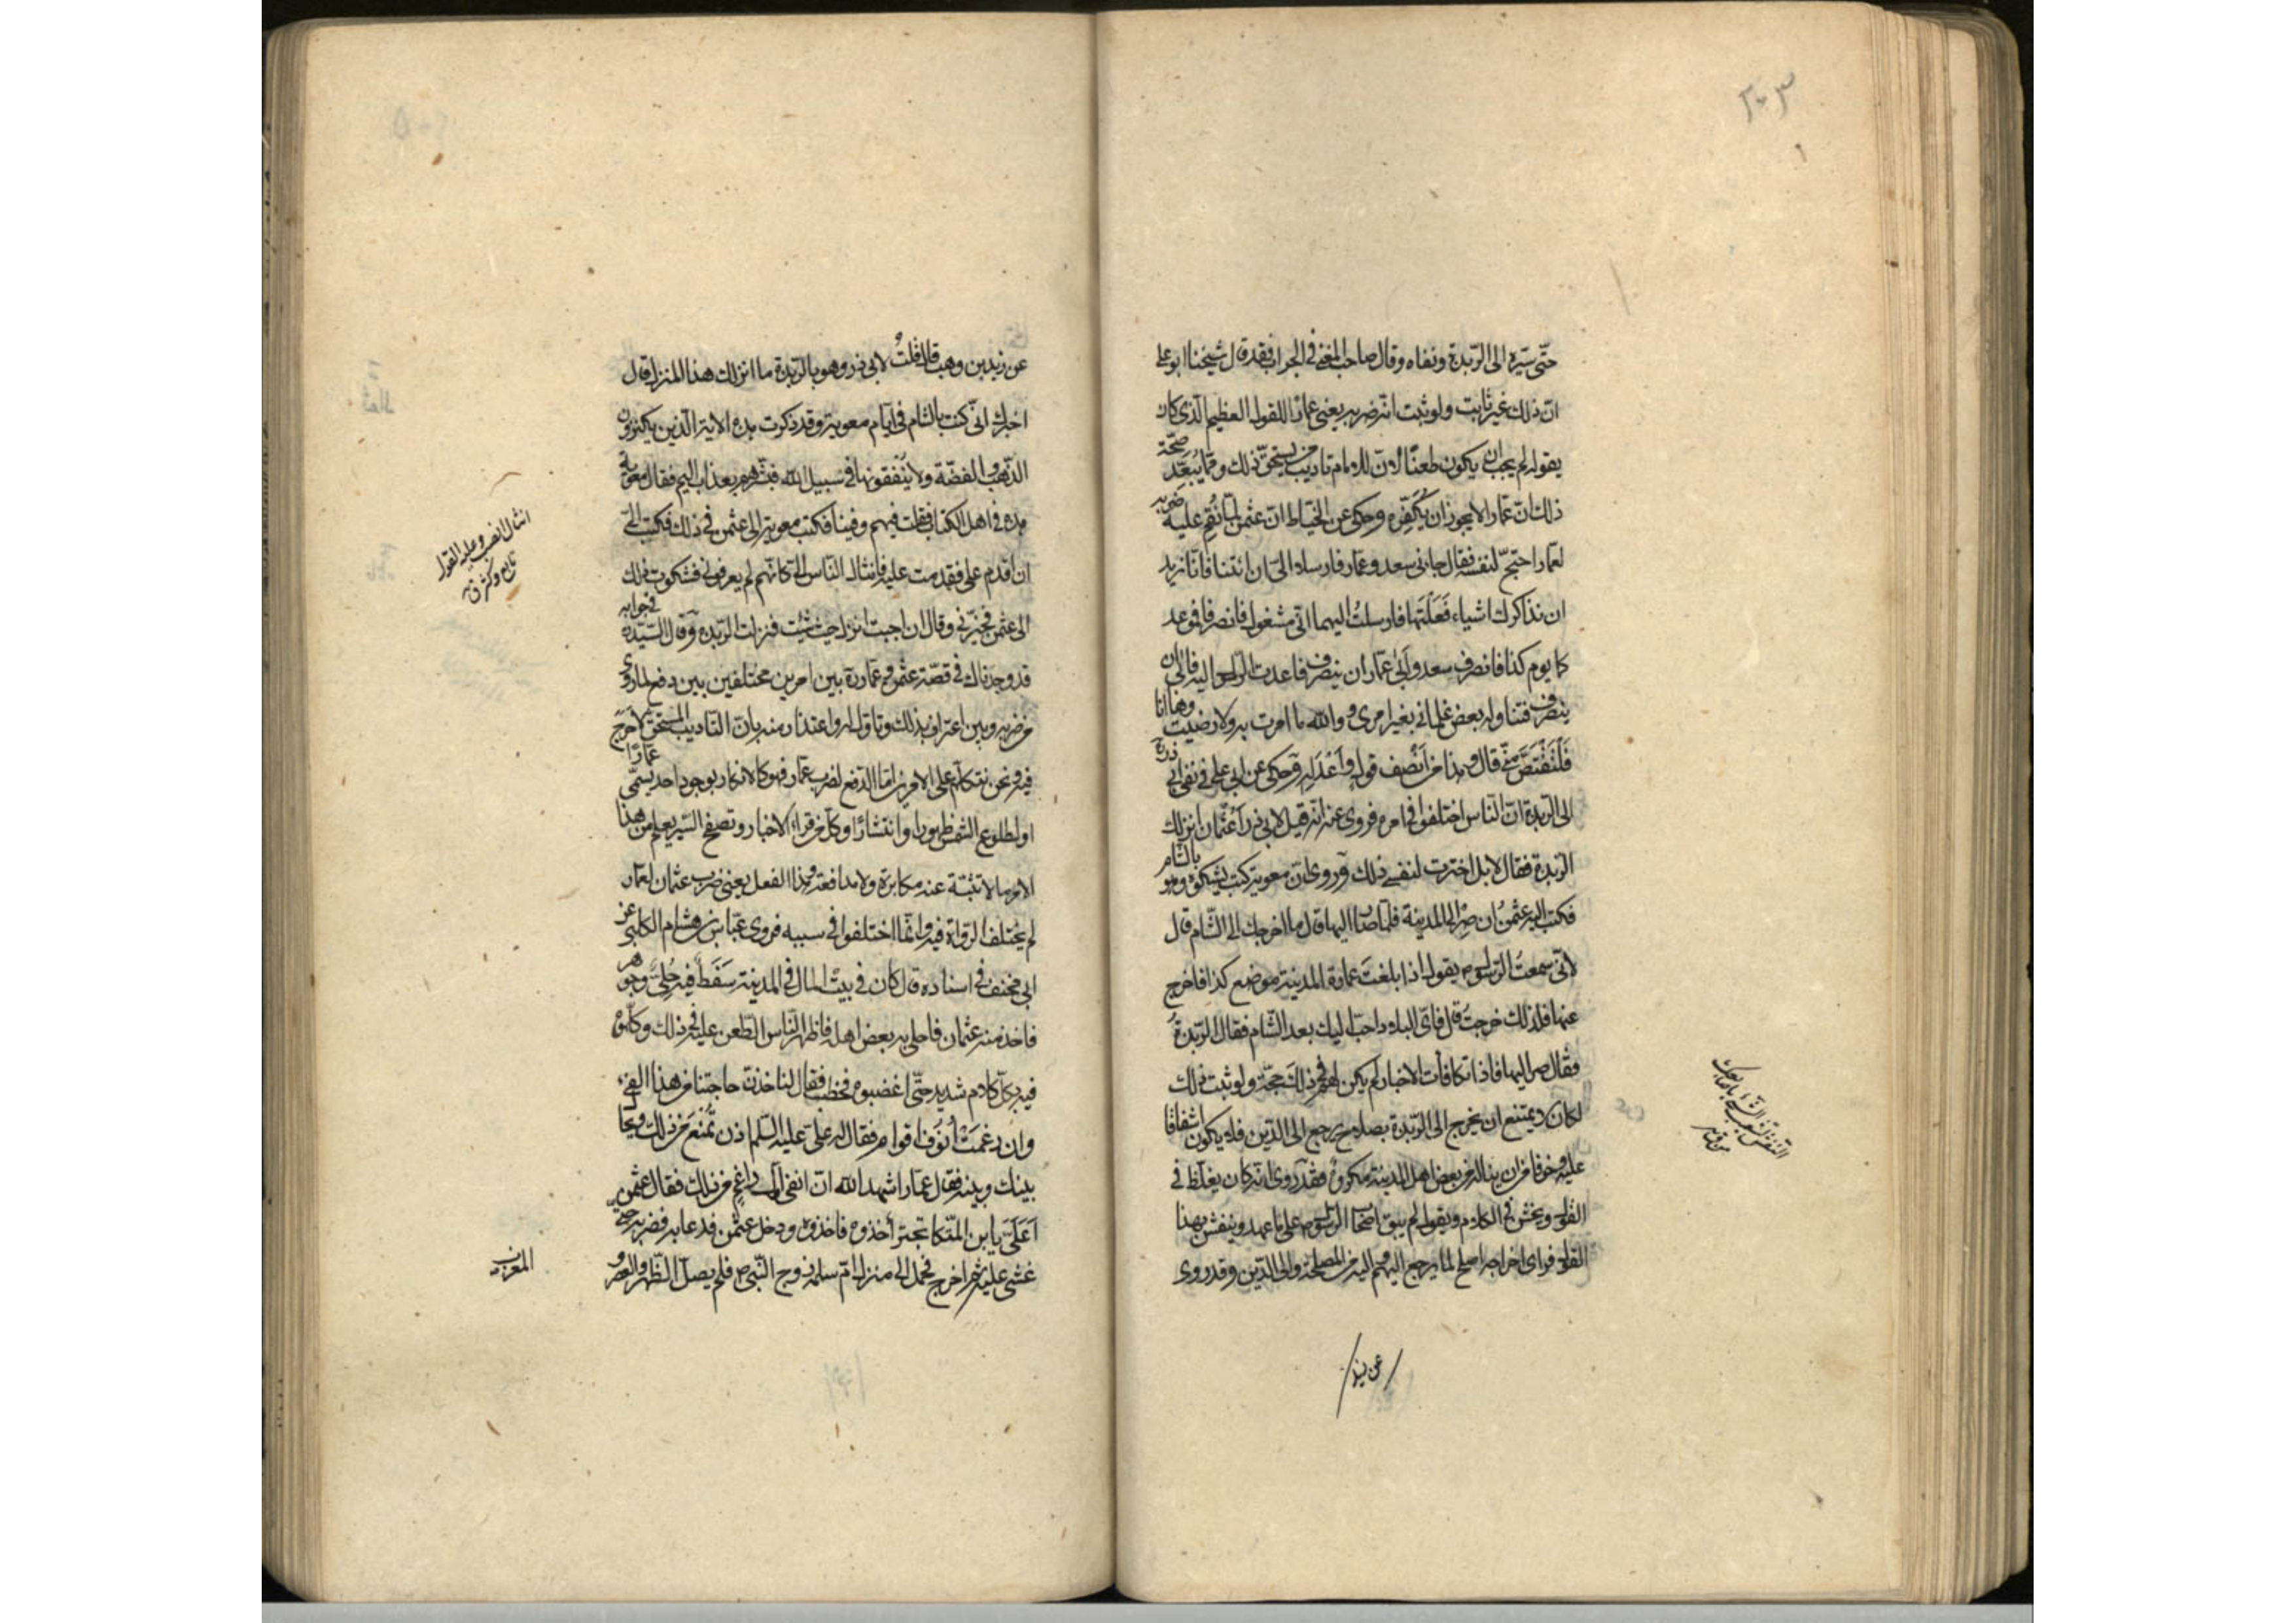 ٢٠٣
حتّى سيّره الى الرّبذة ونفاه وقال صاحب المغنى فى الجواب فقد قال شيخنا ابو على
انّ ذلك غير ثابت ولو ثبت انّه ضربه يعنى عمارًا للقول العظيم الّذى كان
يقوله لم يجب ان يكون طعنًا لانّ للامام تاديب من يستحقّ ذلك وممّا يُبعّد صحّة
ذلك انّ عمّار الا يجوز ان يُكَفِّره وحكى عن الخيّاط انّ عثمن لمّا نُقِم عليه ضربه
لعمّار احتجّ لنفسه فقال جانى سعد وعمّار فارسلا الىّ ان ائتنا فانّا نريد
ان نذاكرك اشياء فَعَلْتَها فارسلتُ اليهما انّى مشغول فانصرفا فموعد
كما يوم كذا فانصرف سعد وأبى عمّار ان ينصرف فاعدت الرّسول اليه فابى ان
ينصرف فتناوله بعض غلمانى بغير امرى و والله ما امرت به ولا رضيت وها انا
فَلْيَقْتَصَّ منّى قال وهذا من أنصف قول وأعْدَله وحكى عن ابى على فى نفى ابى ذرة
الى الرّبذة انّ النّاس اختلفوا فى امره فروى عنه انّه قيل لابى ذر أعُثمان انزلك
الرّبذة فقال لا بل اخترت لنفسى ذلك وروى انّ معوية كتب يشكوه وهو بالشّام
فكتب اليه عثمنُ ان صِرْ الى المدينة فلمّا صار اليها قال ما اخرجك الى الشّام قال
لانّى سمعتُ الرّسول ص يقول اذا بلغتَ عمارة المدينة موضع كذا فاخرج
عنها فلذلك خرجتُ قال فاىّ البلاد احبّ اليك بعد الشّام فقال الرّبذةُ
فقال صر اليها فاذا تكافأت الاخبار لم يكن لهم فى ذلك حجّة ولو ثبت ذلك
لكان لا يمتنع ان يخرج الى الرّبذة بصلاح يرجع الى الدّين فلا يكون اشفاقا
عليه وخوفا من ان يناله من بعض اهل المدينة مكروه فقد روى انّه كان يغلّظ فى
القول ويخشن فى الكلام ويقول لم يبق اصحاب الرّسول ص على ما عهد وينفش بهذا
القول فراى اخراجه اصلح لما يرجع اليهم واليه من المصلحة والى الدّين وقد روى
عن زيد
عن زيد بن وهب قال قلتُ لابى ذر وهو بالرّبذة ما انزلك هذا المنزل قال
اخبرك انّى كنت بالشّام فى ايّام معوية وقد ذكرت هذه الاية الّذين يكنزون
الذّهب والفضّة ولا يُنفقونها فى سبيل الله فبشّرهم بعذاب اليم فقال معوية
هذه فى اهل الكتاب فقلت فيهم وفينا فكتب معوية الى عثمن فى ذلك فكتب الىّ
ان اقدم علىّ فقدمت عليه فانثال النّاس الىّ كانّهم لم يعرفونى فشكوت ذلك
الى عثمن فخيّرنى وقال ان احببت انزل حيث شئت فنزلت الرّبذة وقال السّيّد ره فى جوابه
قد وجدناك فى قصّة عثمن وعمّار ره بين امرين مختلفين بين دفع لما روى
من ضربه وبين اعتراف بذلك وتاوّل له واعتذار منه بانّ التّاديب المستحقّ لا حَرَجَ
فيه ونحن نتكلّم على الامرين امّا الدّفع لضرب عمّار فهو كالانكار بوجود احد يسمّى عمّارًا
او لطلوع الشّمس ظهورا وانتشارًا وكلّ من قرا الاخبار وتصفّح السّير يعلم من هذا
الامر ما لا تثنيه عنه مكابرة ولا مدافعة وهذا الفعل يعنى ضرب عثمان لعمّار
لم يختلف الرّواة فيه وانّما اختلفوا فى سببه فروى عبّاس بن هشام الكلبى عن
ابى مخنف فى اسناده قال كان فى بيت المال فى المدينة سَفَطٌ فيه حُلىٌّ وجوهر
فاخذ منه عثمان فاحلى به بعض اهله فاظهر النّاس الطّعن عليه فى ذلك وكلّموه
فيه بكلّ كلام شديد حتّى اغضبوه فخطب فقال لناخذنّ حاجتنا من هذا الفىء
وان رغمت أنُوف اقوام فقال له علىّ عليه السّلم اذن تُمنَع من ذلك ويحال
بينك وبينه فقال عمّار اشهد الله انّ انفى اوّل راغم من ذلك فقال عثمن
أعَلىَّ يا ابن المتكا تجترأ خذوه فاخذوه ودخل عثمن فدعا به فضربه حتّى
غشى عليه ثم اخرج فحمل الى منزل امّ سلمة زوج النّبى ص فلم يصلّ الظّهر والعصر و
انثال انصبّ وعليه القول
تتابع وكثر ق
المغرب